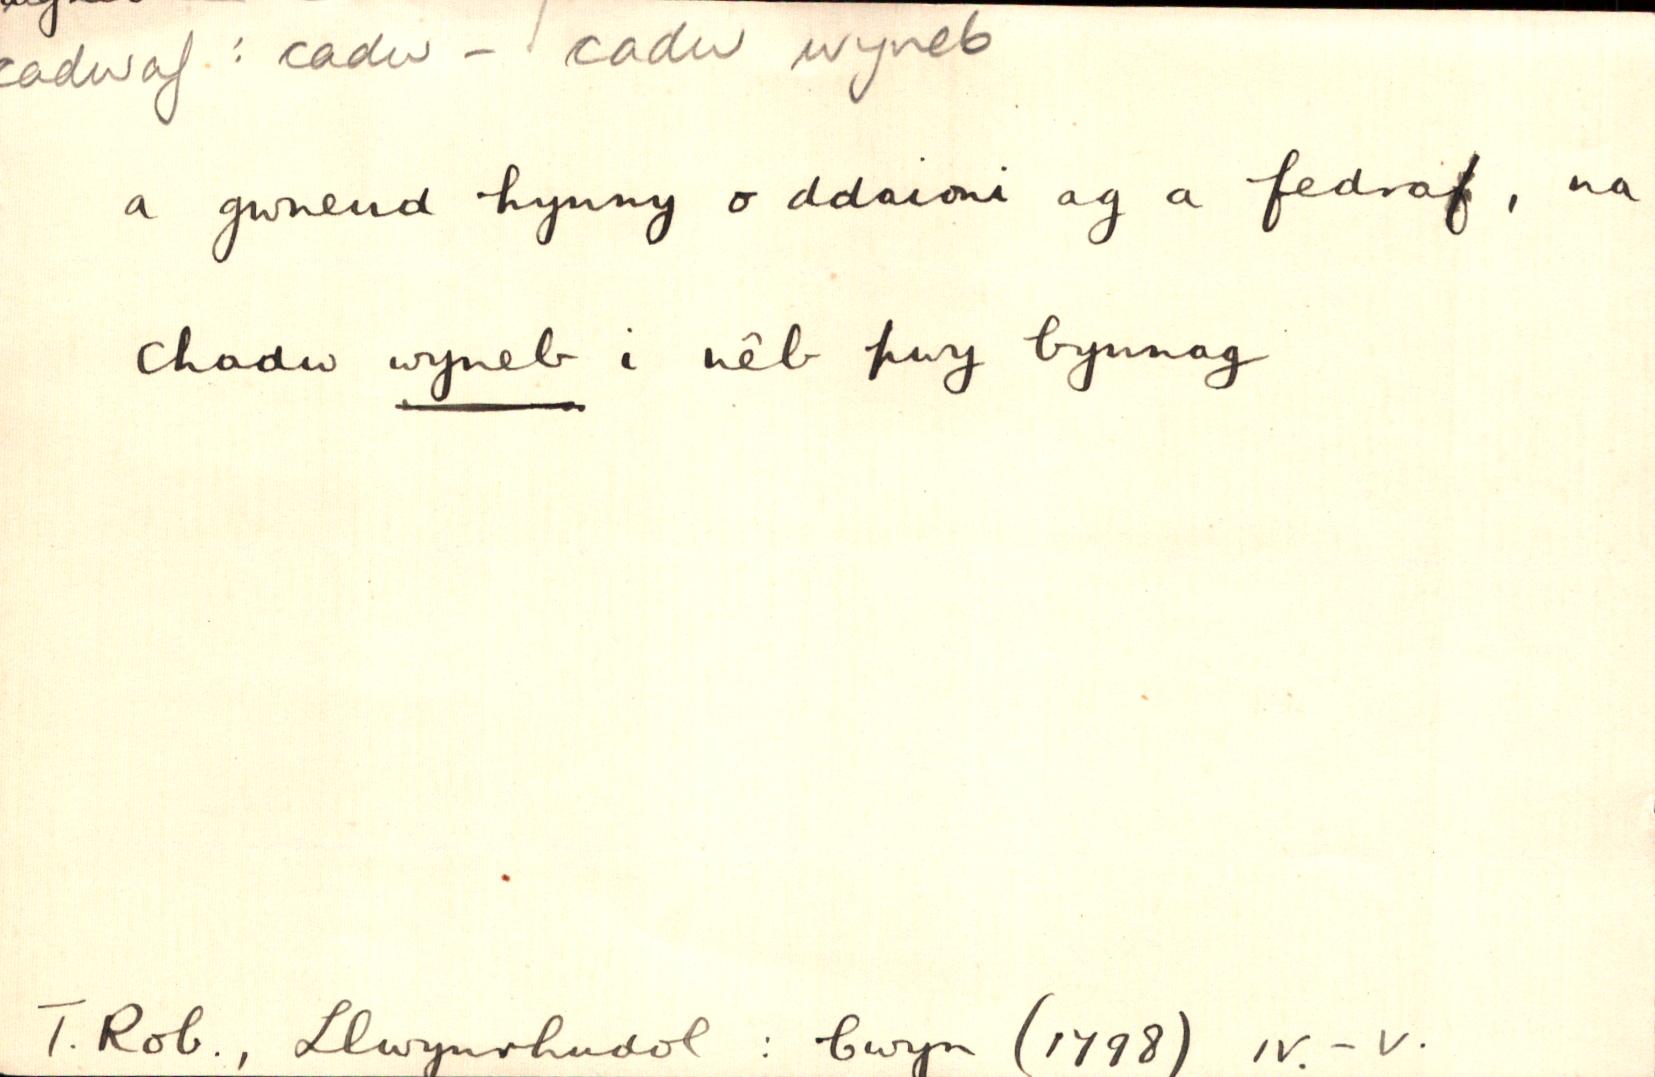 cadwaf : cadw - cadw wyneb
a gwneud hynny o ddaioni ag a fedraf, na
chadw wyneb i nêb pwy bynnag
T. Rob., Llwynrhudol : Cwyn (1798) IV. - V.